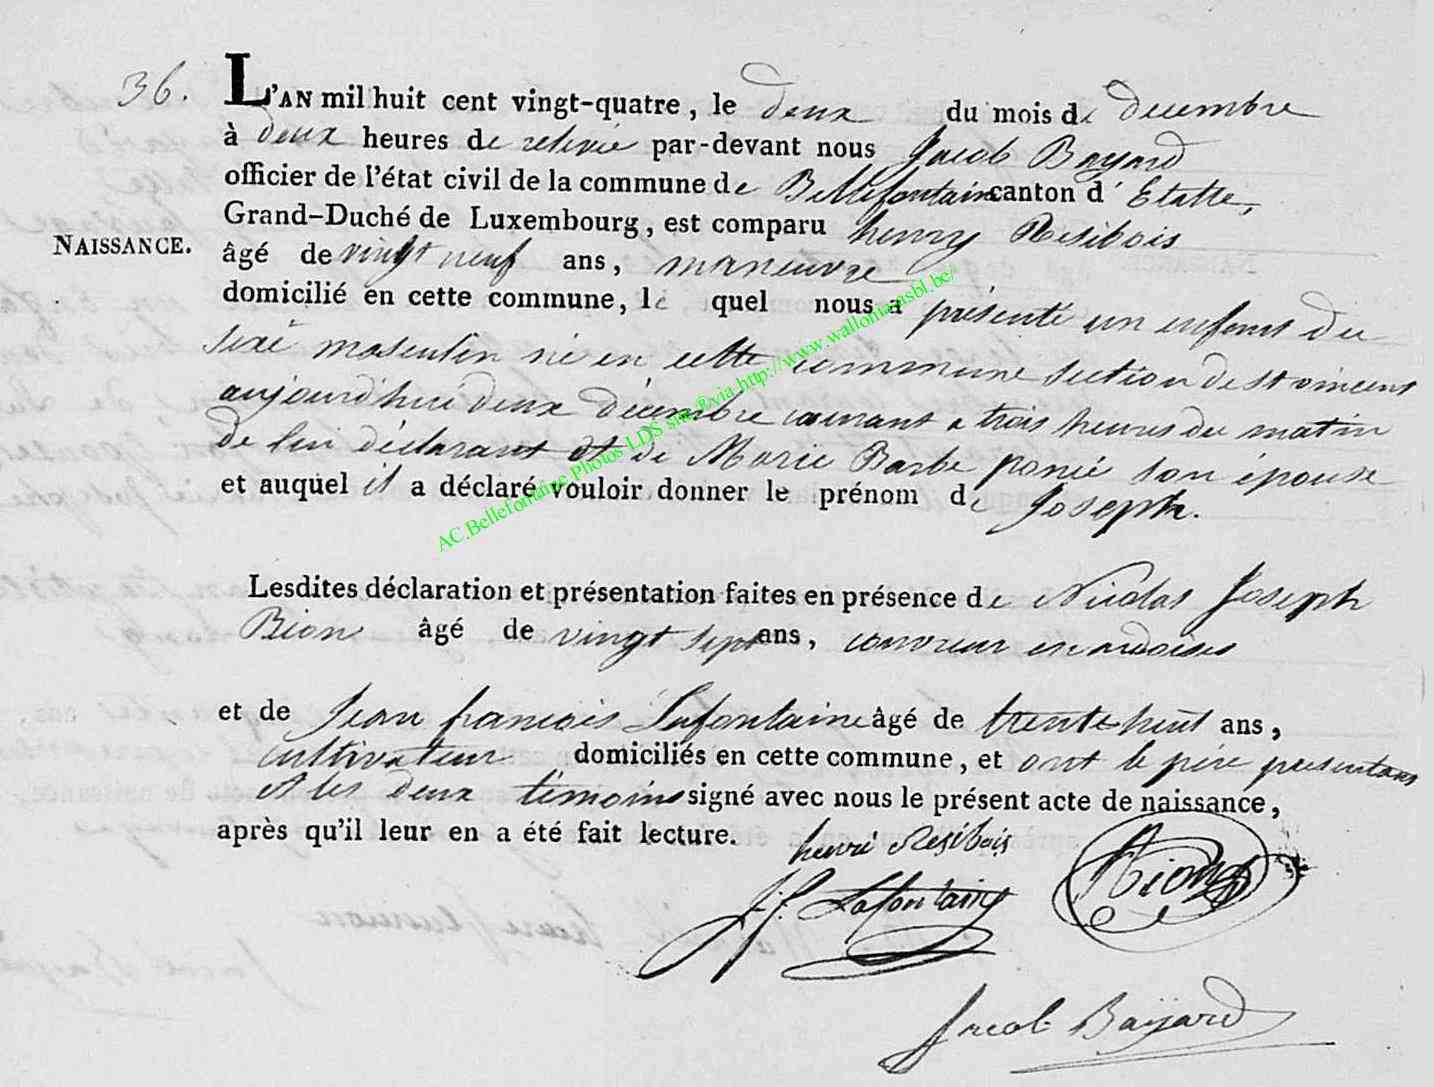 36.
L'AN mil huit cent vingt-quatre, le deux du mois de decembre
à deux heures de relevée par-devant nous Jacob Bayard
officier de l'état civil de la commune de Bellefontaine canton d'Etalle,
Grand-Duché de Luxembourg, est comparu henry Resibois
NAISSANCE.
âgé de vingt neuf ans, maneuvre
domicilié en cette commune, le quel nous a présenté un enfant du
sexe masculin né en cette commune section de st vincent
aujourd'hui deux décembre courant a trois heures du matin
de lui déclarant et de Marie Barbe ponié son épouse
et auquel il a déclaré vouloir donner le prénom de Joseph.
AC.Bellefontaine.Photos LDS sur Ovia http://www.wallonia.asbl.be/
Lesdites déclaration et présentation faites en présence de Nicolas Joseph
Bion âgé de vingt sept ans, couvreur en ardoises
et de Jean francois Lafontaine âgé de trente huit ans,
cultivateur domiciliés en cette commune, et ont le père présentant
et les deux témoins signé avec nous le présent acte de naissance,
après qu'il leur en a été fait lecture.
henri Resibois
J.f. Lafontaine
Bion
Jacob Bayard